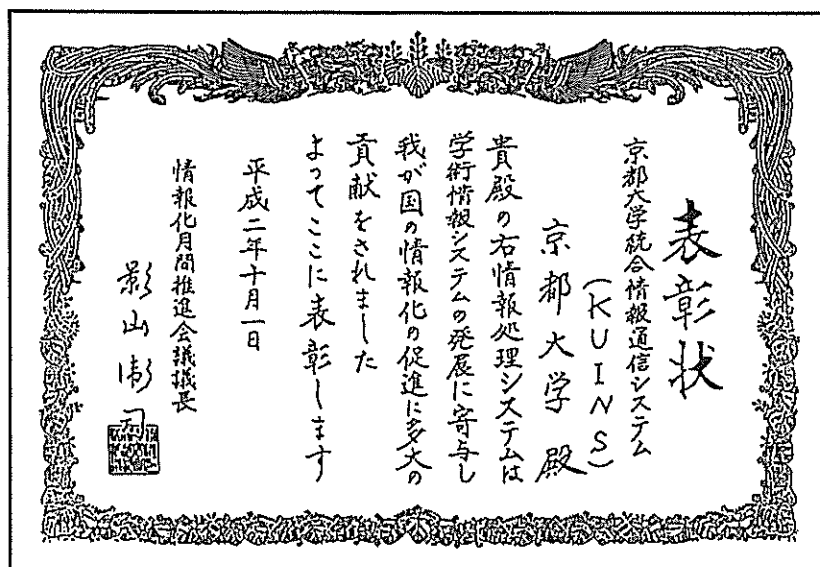 表彰状
京都大学統合情報通信システム
(KUINS)
京都大学殿
貴殿の右情報処理システムは
学術情報システムの発展に寄与し
我が国の情報化の促進に多大の
貢献をされました
よってここに表彰します
平成二年十月一日
情報化月間推進会議議長
影山衛司